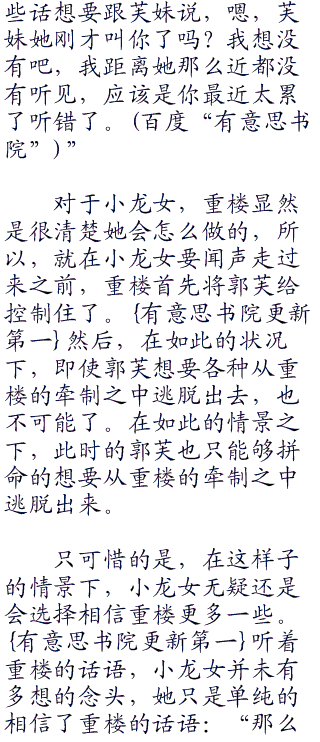 些话想要跟芙妹说，嗯，芙
妹她刚才叫你了吗？我想没
有吧，我距离她那么近都没
有听见，应该是你最近太累
了听错了。(百度“有意思书
院”)”
对于小龙女，重楼显然
是很清楚她会怎么做的，所
以，就在小龙女要闻声走过
来之前，重楼首先将郭芙给
控制住了。{有意思书院更新
第一}然后，在如此的状况
下，即使郭芙想要各种从重
楼的牵制之中逃脱出去，也
不可能了。在如此的情景之
下，此时的郭芙也只能够拼
命的想要从重楼的牵制之中
逃脱出来。
只可惜的是，在这样子
的情景下，小龙女无疑还是
会选择相信重楼更多一些。
{有意思书院更新第一}听着
重楼的话语，小龙女并未有
多想的念头，她只是单纯的
相信了重楼的话语：“那么